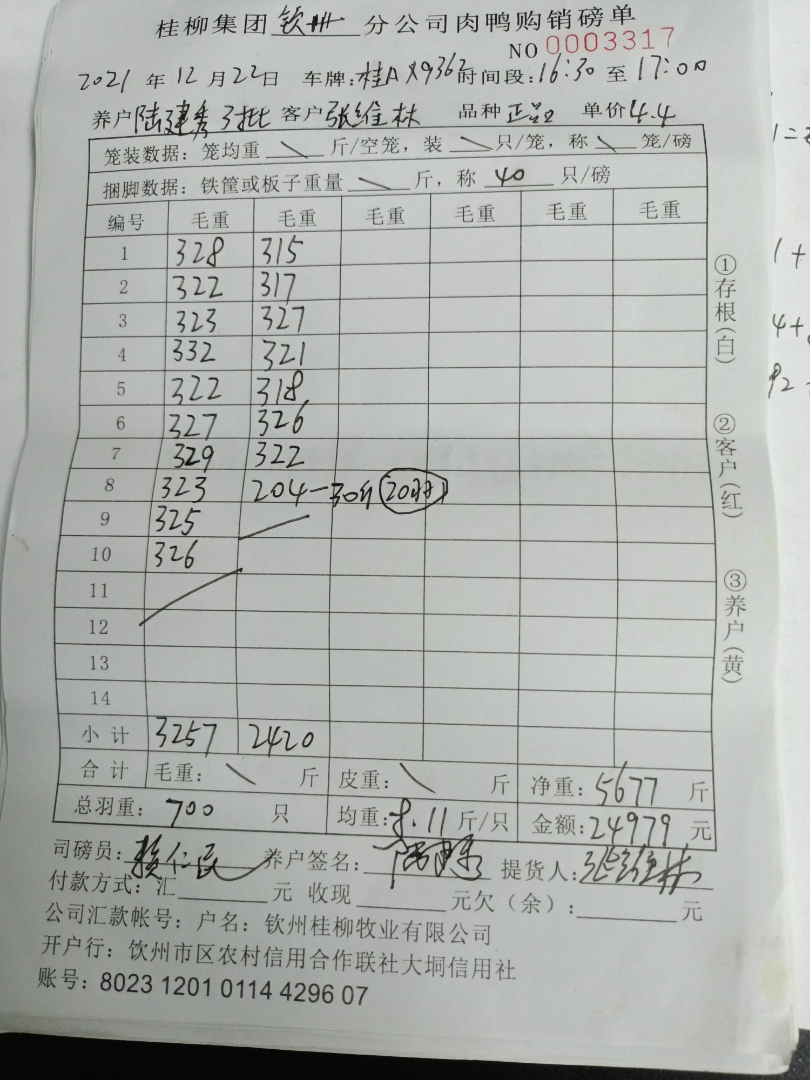 桂柳集团钦州分公司肉鸭购销磅单
NO 0003317
2021年12月22日 车牌:桂A X9362 时间段:16:30至17:00
养户陆建秀3批 客户张维林 品种正品 单价4.4
笼装数据:笼均重\斤/空笼,装\只/笼,称\笼/磅
捆脚数据:铁筐或板子重量\斤,称40只/磅
编号 毛重 毛重 毛重 毛重 毛重 毛重
1 328 315
2 322 317
3 323 327
4 332 321
5 322 318
6 327 326
7 329 322
8 323 204-30斤(20羽)
9 325
10 326
11
12
13
14
小计 3257 2420
合计 毛重:\斤 皮重:\斤 净重:5677斤
总羽重:700只 均重:8.11斤/只 金额:24979元
司磅员:赖仁民 养户签名:陆建秀 提货人:张维林
付款方式:汇 元 收现 元欠(余): 元
公司汇款帐号:户名:钦州桂柳牧业有限公司
开户行:钦州市区农村信用合作联社大垌信用社
账号:8023 1201 0114 4296 07
①存根(白)
②客户(红)
③养户(黄)
1=
1+
4+
92